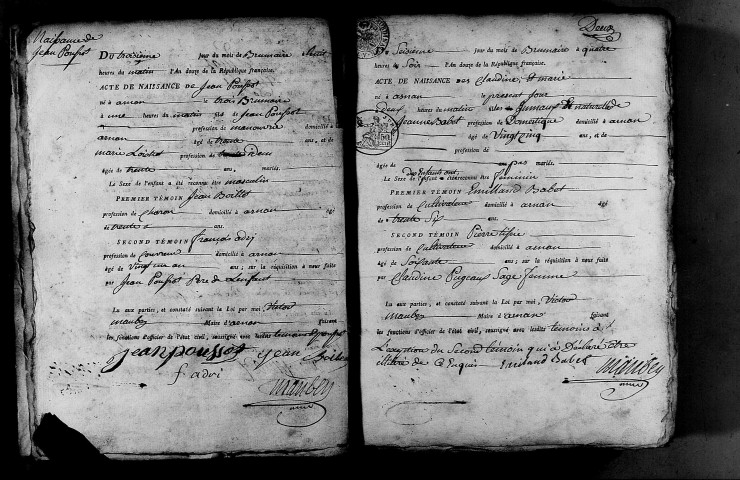 Naissance de
Jean Poussot
Du treizieme jour du mois de Brumaire
heures du matin l'An douze de la République française.
ACTE DE NAISSANCE DE Jean Poussot
né à arnan le trois Brumaire
à une heures du matin fils de Jean Poussot
profession de manouvre domicilié à
arnan âgé de trente ans, et de
marie profession de
âgée de trente ans, mariés.
Le Sexe de l'enfant a été reconnu être masculin
PREMIER TÉMOIN Jean Boillot
profession de charon domicilié à arnan âgé
de trente ans.
SECOND TÉMOIN françois adri
profession de couvreur domicilié à arnan
âgé de Vingt un an ans; sur la réquisition à nous faite
par Jean Poussot Pere de L'enfant
Lu aux parties, et constaté suivant la Loi par moi, Victor
maubey Maire d'arnan faisant
les fonctions d'officier de l'état civil, soussigné avec lesdits temoins
jean poussot jean
f adri
maubey
maire
Deux
Du Seizieme jour du mois de Brumaire à quatre
heures du Soir l'An douze de la République française.
ACTE DE NAISSANCE DES Claudine, et marie
né à arnan le present jour
deux heures du matin filles Jumaux naturelle de
Jeanne Babot profession de Domestique domicilié à arnan
âgé de Vingt cinq ans, et de
profession de
âgée de ans, pas mariés.
des Enfants ont
Le Sexe de l'enfant a été reconnu être feminin
PREMIER TÉMOIN Emilland Babot
profession de Cultivateur domicilié à arnan âgé
de trente Six ans.
SECOND TÉMOIN Pierre
profession de Cultivateur domicilié à arnan
âgé de Soixante ans; sur la réquisition à nous faite
par Claudine Pugeaux Sage femme
Lu aux parties, et constaté suivant la Loi par moi, Victor
maubey Maire d'arnan faisant
les fonctions d'officier de l'état civil, soussigné avec lesdits temoins à
L'exception du Second temoin qui à Declaré être
illitré de Ce Enquis emiland Babot maubey
maire